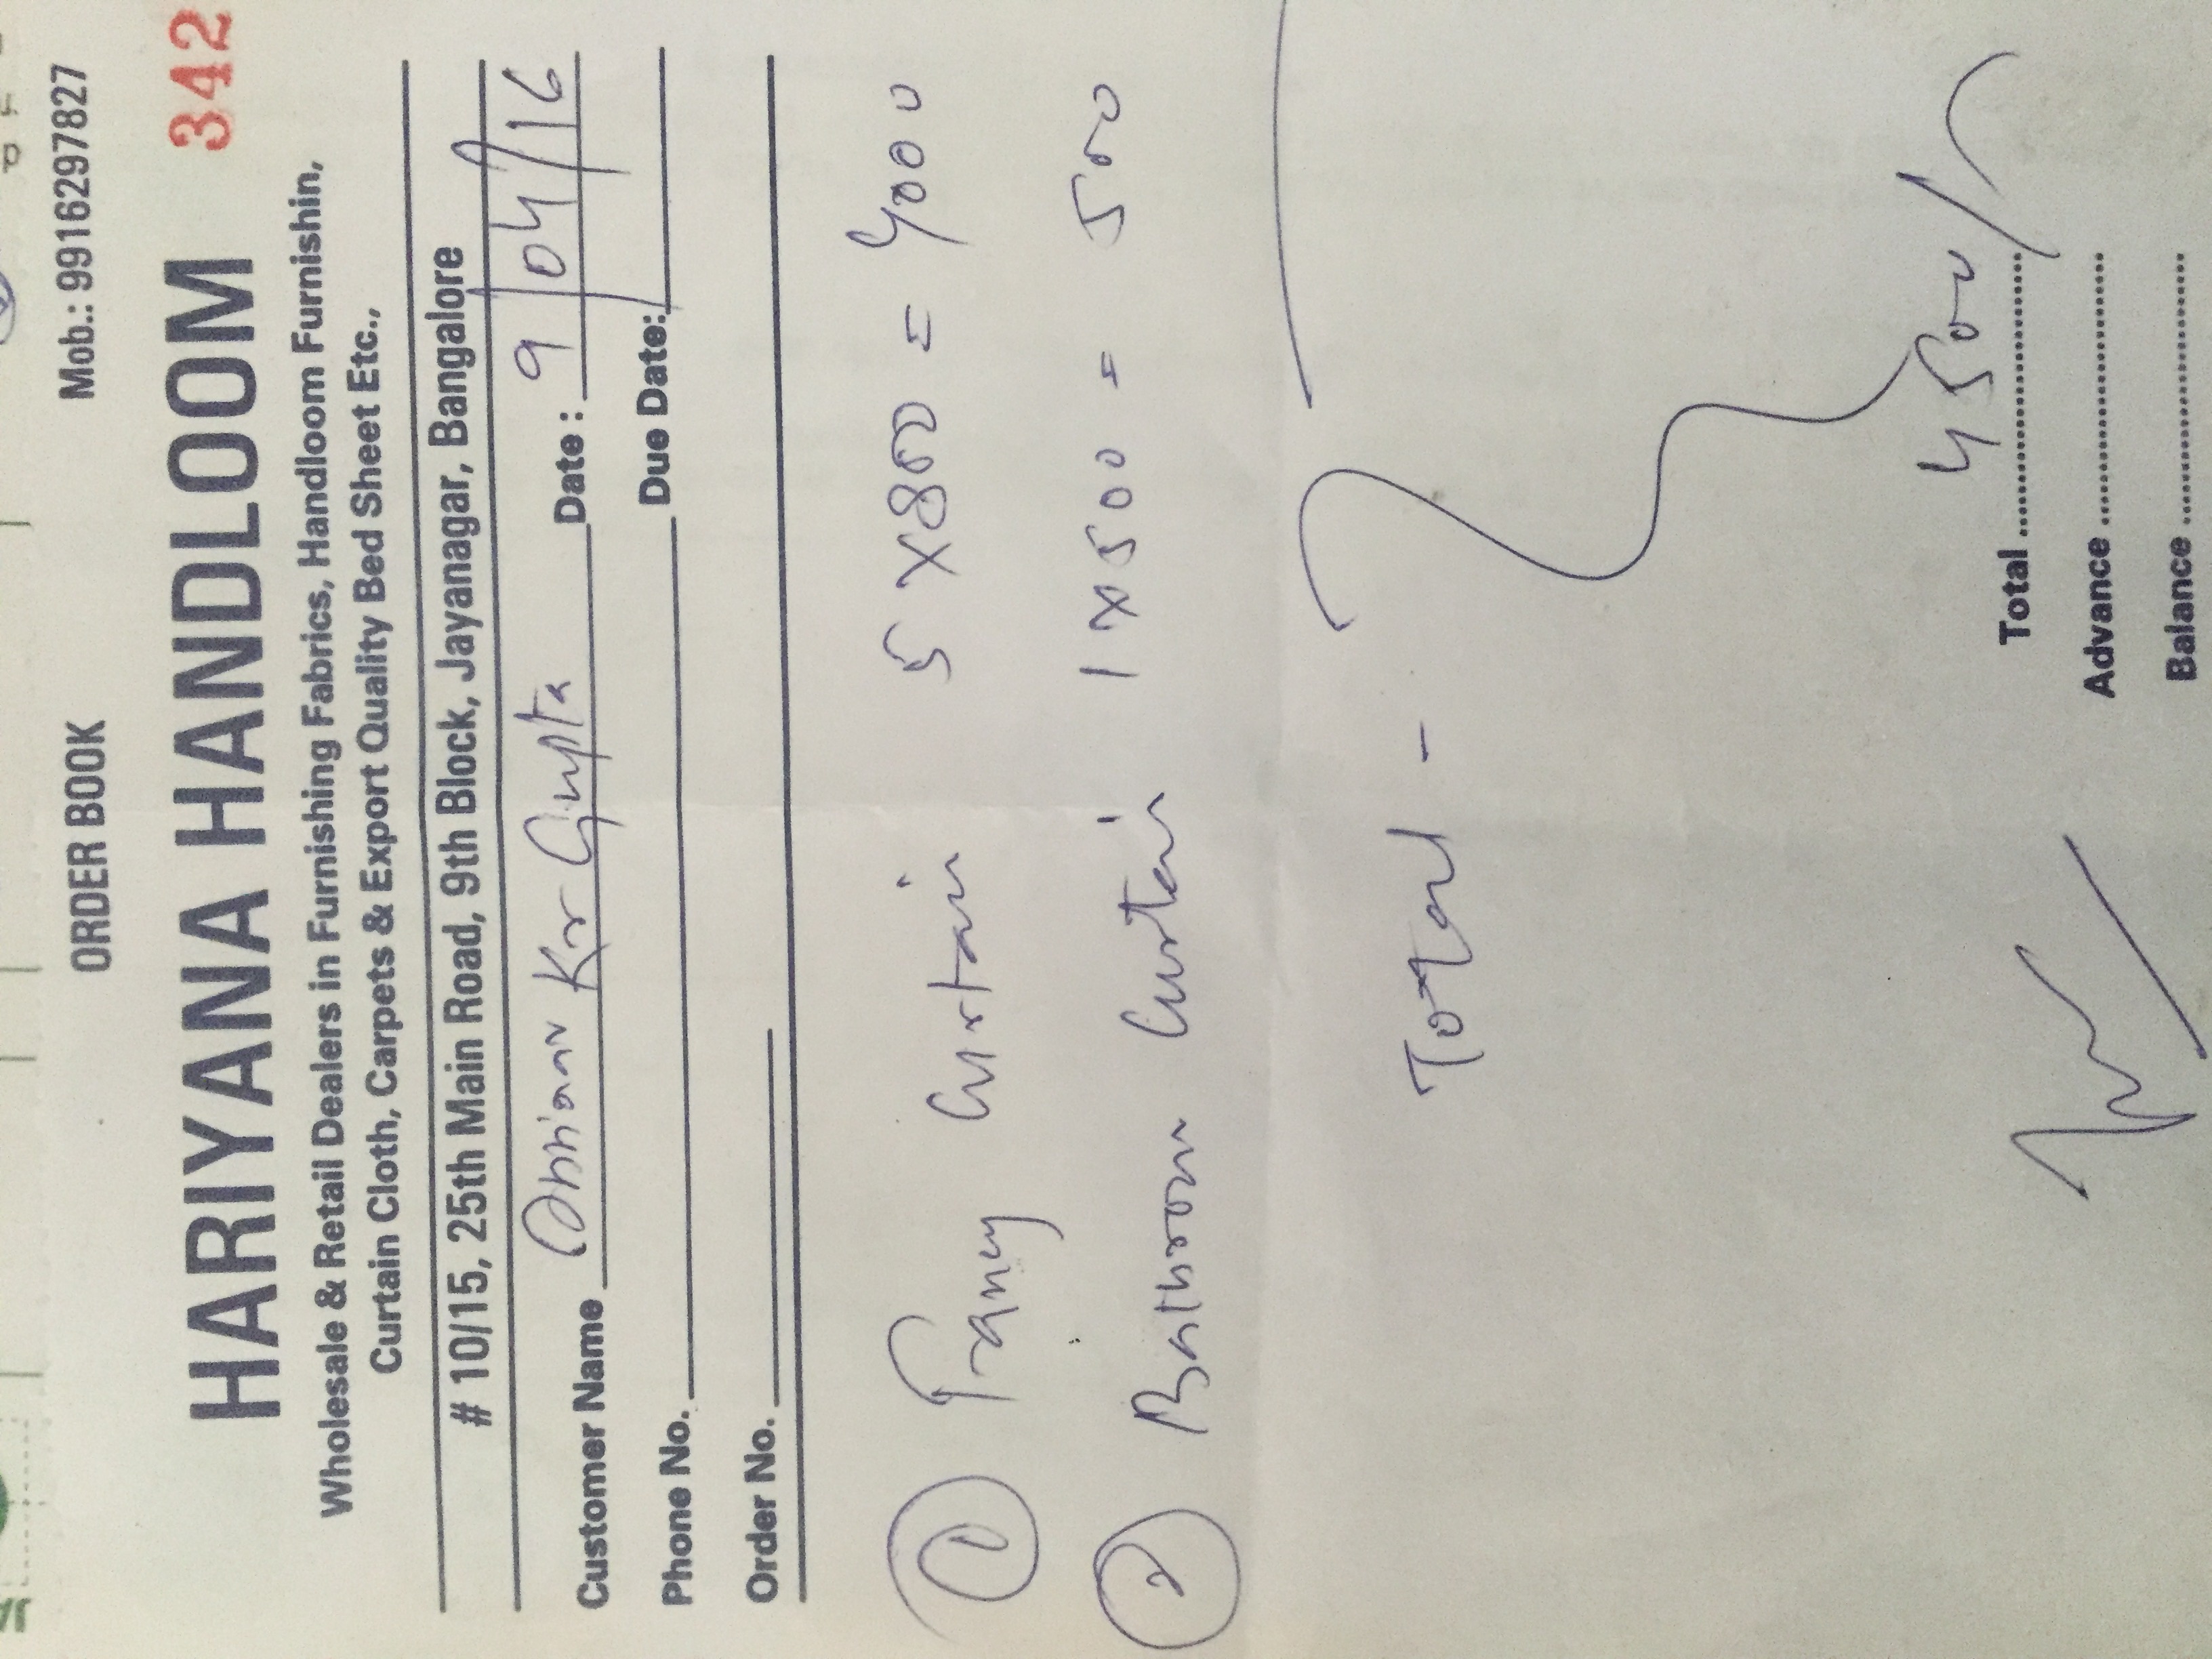 ORDER BOOK Mob.: 9916297827
HARIYANA HANDLOOM 342
Wholesale & Retail Dealers in Furnishing Fabrics, Handloom Furnishin,
Curtain Cloth, Carpets & Export Quality Bed Sheet Etc.,
# 10/15, 25th Main Road, 9th Block, Jayanagar, Bangalore
Customer Name Kr Gupta Date : 9/04/16
Phone No. Due Date:
Order No.
1 Francy Curtain 5 X 800 = 4000
2 Bathroom Curtain 1 X 500 = 500
Total -
4500/-
Total
Advance
Balance